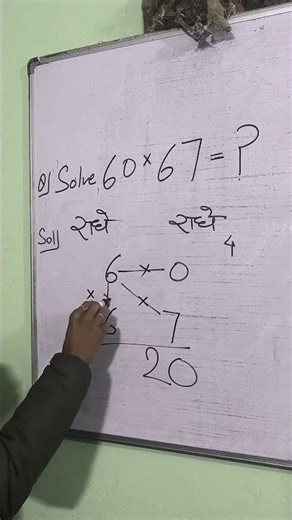 Q) Solve 60 × 67 = ?
Sol) राधे राधे
4
6 × 0
× × 
6 7
20